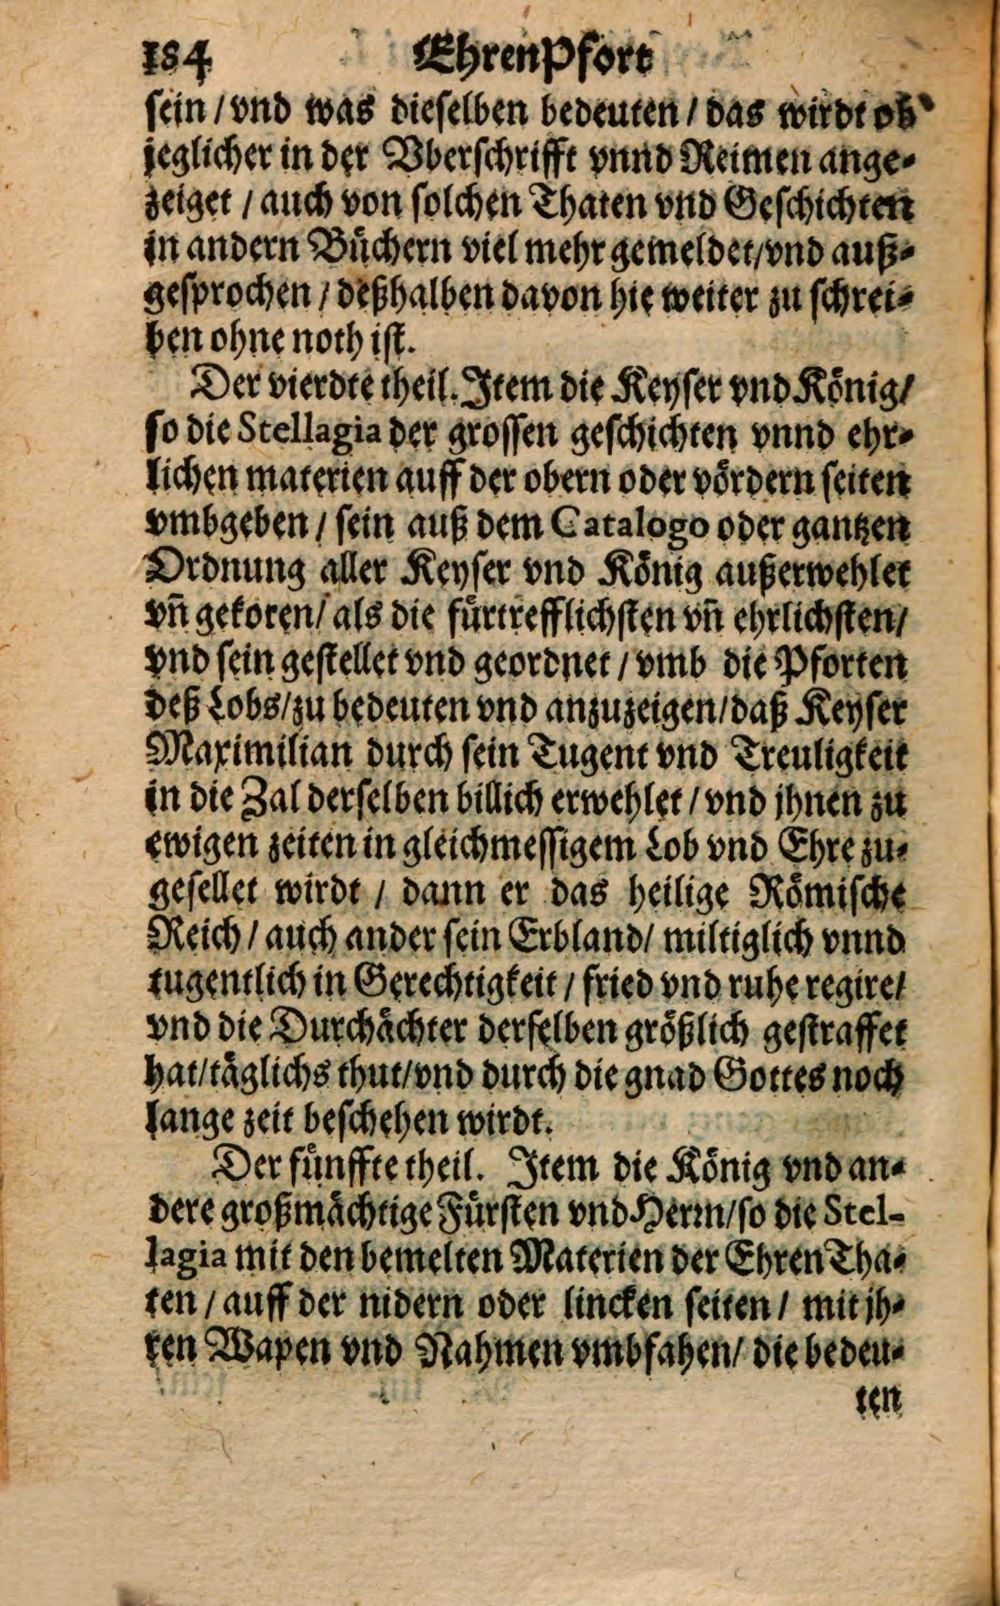 184 EhrenPfort
sein / vnd was dieselben bedeuten / das wirdt ob
jeglicher in der Vberschrifft vnnd Reimen ange-
zeiget / auch von solchen Thaten vnd Geschichten
in andern Büchern viel mehr gemeldet / vnd auß-
gesprochen / deßhalben davon hie weiter zu schrei-
ben ohne noth ist.
Der vierdte theil. Item die Keyser vnd König /
so die Stellagia der grossen geschichten vnnd ehr-
lichen materien auff der obern oder vördern seiten
vmbgeben / sein auß dem Catalogo oder gantzen
Ordnung aller Keyser vnd König außerwehlet
vn̄ gekoren / als die fürtrefflichsten vn̄ ehrlichsten /
vnd sein gestellet vnd geordnet / vmb die Pforten
deß Lobs / zu bedeuten vnd anzuzeigen / daß Keyser
Maximilian durch sein Tugent vnd Treuligkeit
in die Zal derselben billich erwehlet / vnd jhnen zu
ewigen zeiten in gleichmessigem Lob vnd Ehre zu-
gesellet wirdt / dann er das heilige Römische
Reich / auch ander sein Erbland / miltiglich vnnd
tugentlich in Gerechtigkeit / fried vnd ruhe regire /
vnd die Durchächter derselben größlich gestraffet
hat / täglichs thut / vnd durch die gnad Gottes noch
lange zeit beschehen wirdt.
Der fünffte theil. Item die König vnd an-
dere großmächtige Fürsten vnd Herrn / so die Stel-
lagia mit den bemelten Materien der Ehren Tha-
ten / auff der nidern oder lincken seiten / mit jh-
ren Wapen vnd Nahmen vmbfahen / die bedeu-
ten